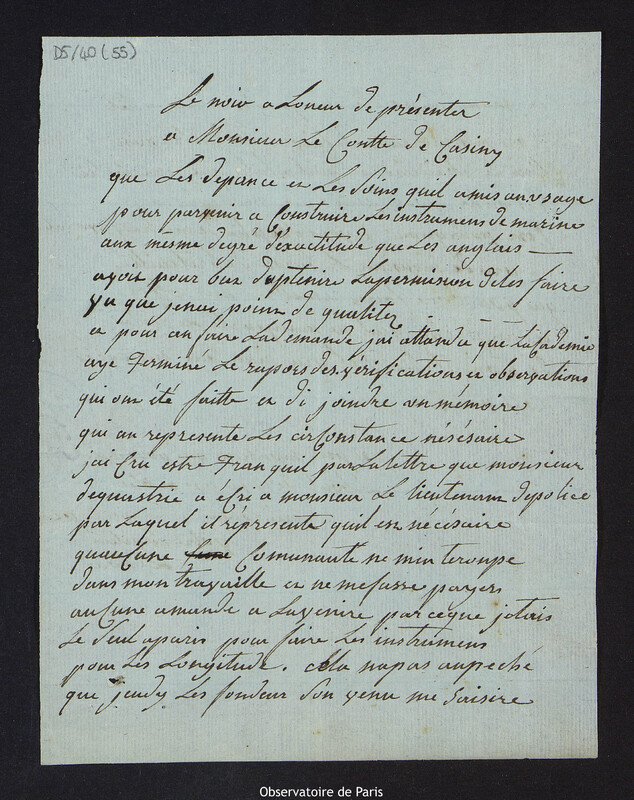 D5/40 (55)
Le noir a Loneur de présenter
a Monsieur Le Contte de Casiny
que Les depance et Les Soins quil a mis an usage
pour parvenir a Construire Les instrumens de marine
aux mesme degré d'exactitude que Les anglais —
avoit pour but daptenire Lapermision de les faire
vu que je nai point de qualitez
et pour an faire La demande jai attandu que Lacademie
aye Terminé Le rapors des vérifications et observations
qui ont été faitte et di joindre un mémoire
qui an represente Les cirConstance nésésaire
jai Cru estre Tranquil par La lettre que monsieur
a écri a monsieur Le lieutenant de police
par Laquel il représente quil est nécésaire
quauCune Comunauté ne min teronpe
dans mon travaille et ne me fasse payers
auCune amande a Lavenire parceque jetais
Le Seul a paris pour faire Les instrumens
pour Les Longitude. Cella na pas anpeché
que jeudy Les fondeur Son venu me Saisire
Observatoire de Paris